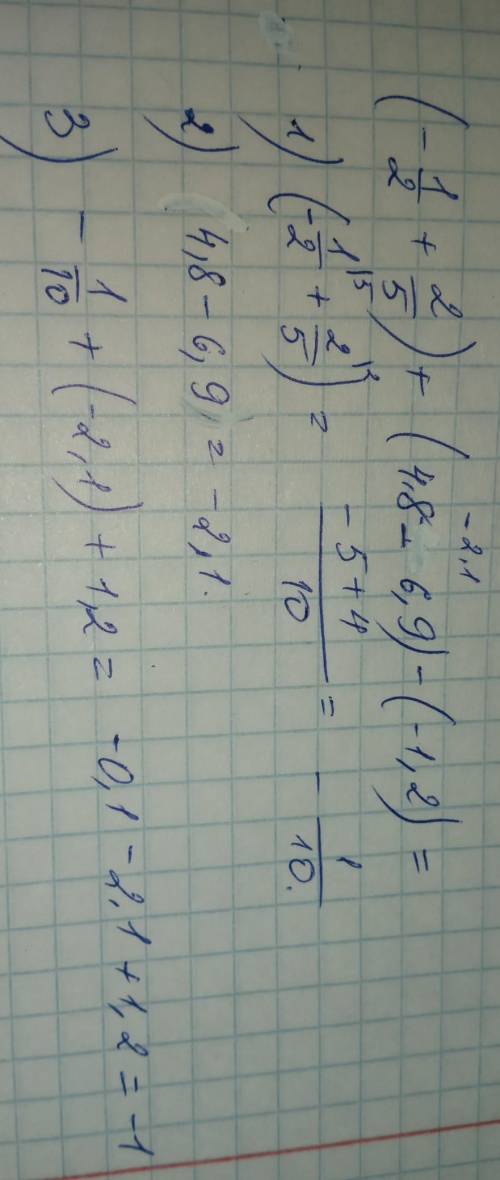 -2,1
(-1/2 + 2/5) + (4,8 - 6,9) - (-1,2) =
1) (-1/2|5 + 2/5|2) = (-5+4)/10 = - 1/10.
2) 4,8 - 6,9 = -2,1.
3) - 1/10 + (-2,1) + 1,2 = -0,1 - 2,1 + 1,2 = -1